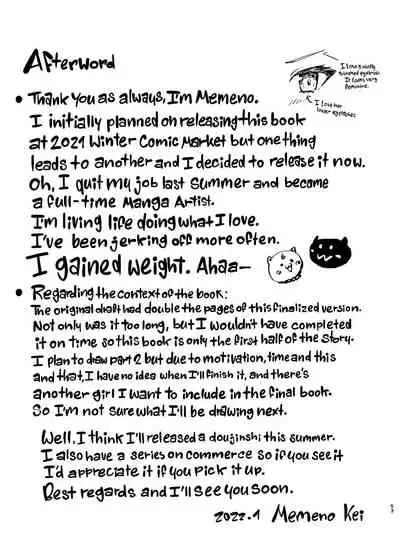 Afterword
I love a nicely
finished eyebrow
It looks very
feminine.
I love her
lower eyelashes
• Thank you as always, I'm Memeno.
I initially planned on releasing this book
at 2021 Winter Comic Market but one thing
leads to another and I decided to release it now.
Oh, I quit my job last summer and become
a full-time Manga Artist.
I'm living life doing what I love.
I've been jerking off more often.
I gained weight. Ahaa~
• Regarding the context of the book:
The original draft had double the pages of this finalized version.
Not only was it too long, but I wouldn't have completed
it on time so this book is only the first half of the story.
I plan to draw part 2 but due to motivation, time and this
and that, I have no idea when I'll finish it, and there's
another girl I want to include in the final book.
So I'm not sure what I'll be drawing next.
Well, I think I'll released a doujinshi this summer.
I also have a series on commerce so if you see it
I'd appreciate it if you pick it up.
Best regards and I'll see you soon.
2022.1 Memeno Kei